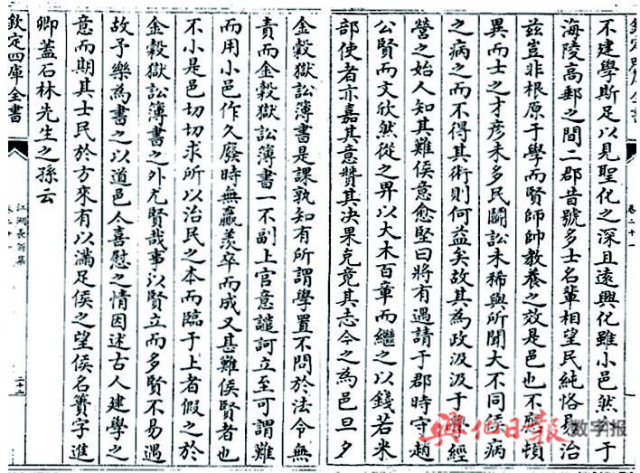 卷二十一
不建學斯足以見聖化之深且遠興化雖小邑然于
海陵高郵之間二郡昔號多士名輩相望民純恪易治
茲豈非根原于學而賢師帥教養之效是邑也不應頓
異而士之才彦未多民鬭訟未稀與所聞大不同侯病
之病之而不得其術則何益矣故其為政汲汲于學經
營之始人知其難侯意愈堅曰將有遇請于郡時守趙
公賢而文欣然從之畀以大木百章而繼之以錢若米
部使者亦嘉其意贊其決果克竟其志今之為邑旦夕
金穀獄訟簿書是課孰知有所謂學置不問於法令無
責而金穀獄訟簿書一不副上官意譴訶立至可謂難
而用小邑作久廢時無贏羨卒而成又甚難侯賢者也
不小是邑切切求所以治民之本而臨于上者假之於
金穀獄訟簿書之外尤賢哉事以賢立而多賢不易遇
故予樂為書之以道邑人喜慰之情因述古人建學之
意而期其士民於方來有以滿足侯之望侯名簀字進
卿蓋石林先生之孫云
欽定四庫全書
江湖長翁集
興化日報 数字报